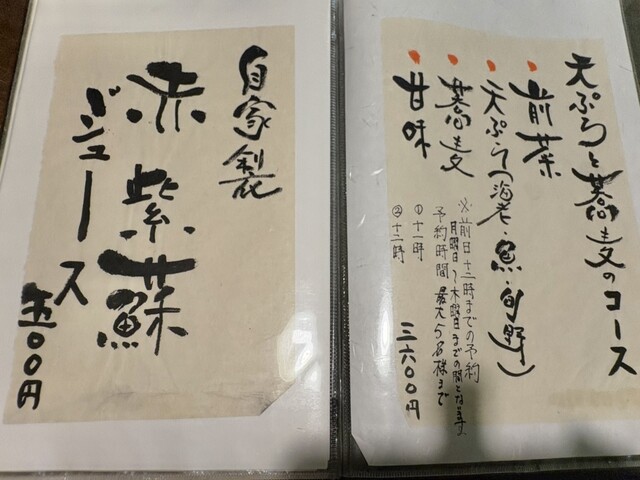 天ぷらと蕎麦のコース
前菜
天ぷら(海老・魚・旬野)
蕎麦
甘味
※前日十二時までの予約
月曜日〜木曜日までの間となります
予約時間 最大5名様まで
①十一時
②十二時
三六〇〇円
自家製
赤紫蘇
ジュース
五〇〇円